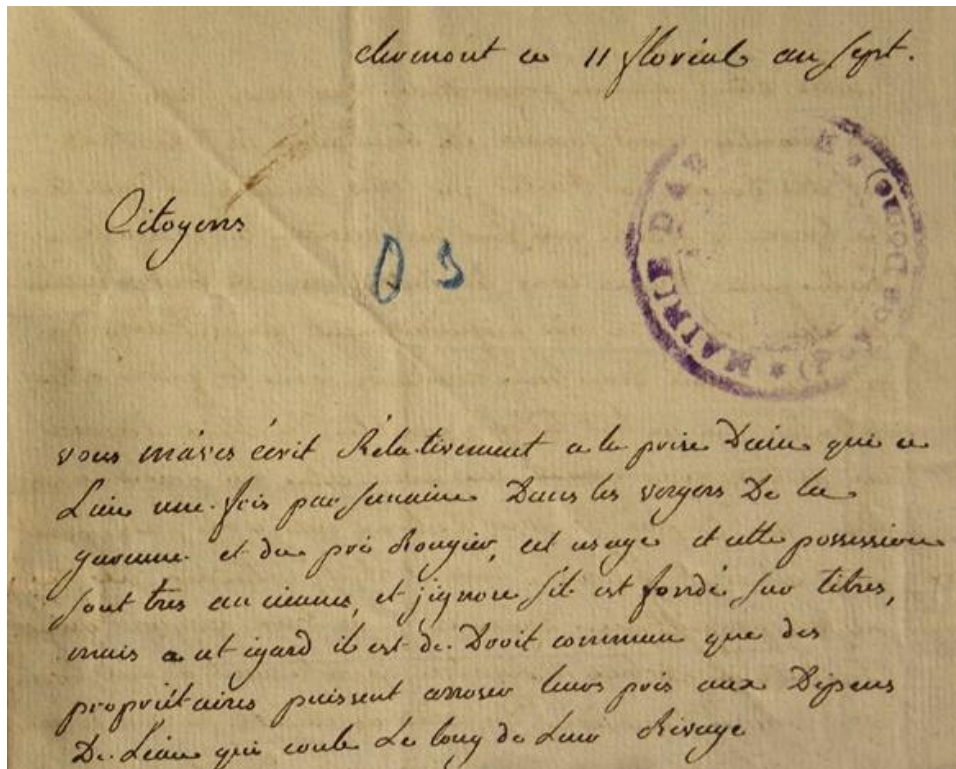 clermont ce 11 floréal an sept.
Citoyens
MAIRIE D'AU
(PUY DE DÔME)
vous m'avés écrit Rélativement a la prise Deau que a
Lieu une fois par semaine Dans les vergers De la
garenne et du pré Rougier, cet usage et cette possession
sont tres anciennes, et j'ignore s'il est fondé sur titres,
mais a cet égard il est de Droit commun que des
propriétaires puissent arroser leurs prés aux Dépens
De Leau qui coule Le long de Leur Rivage